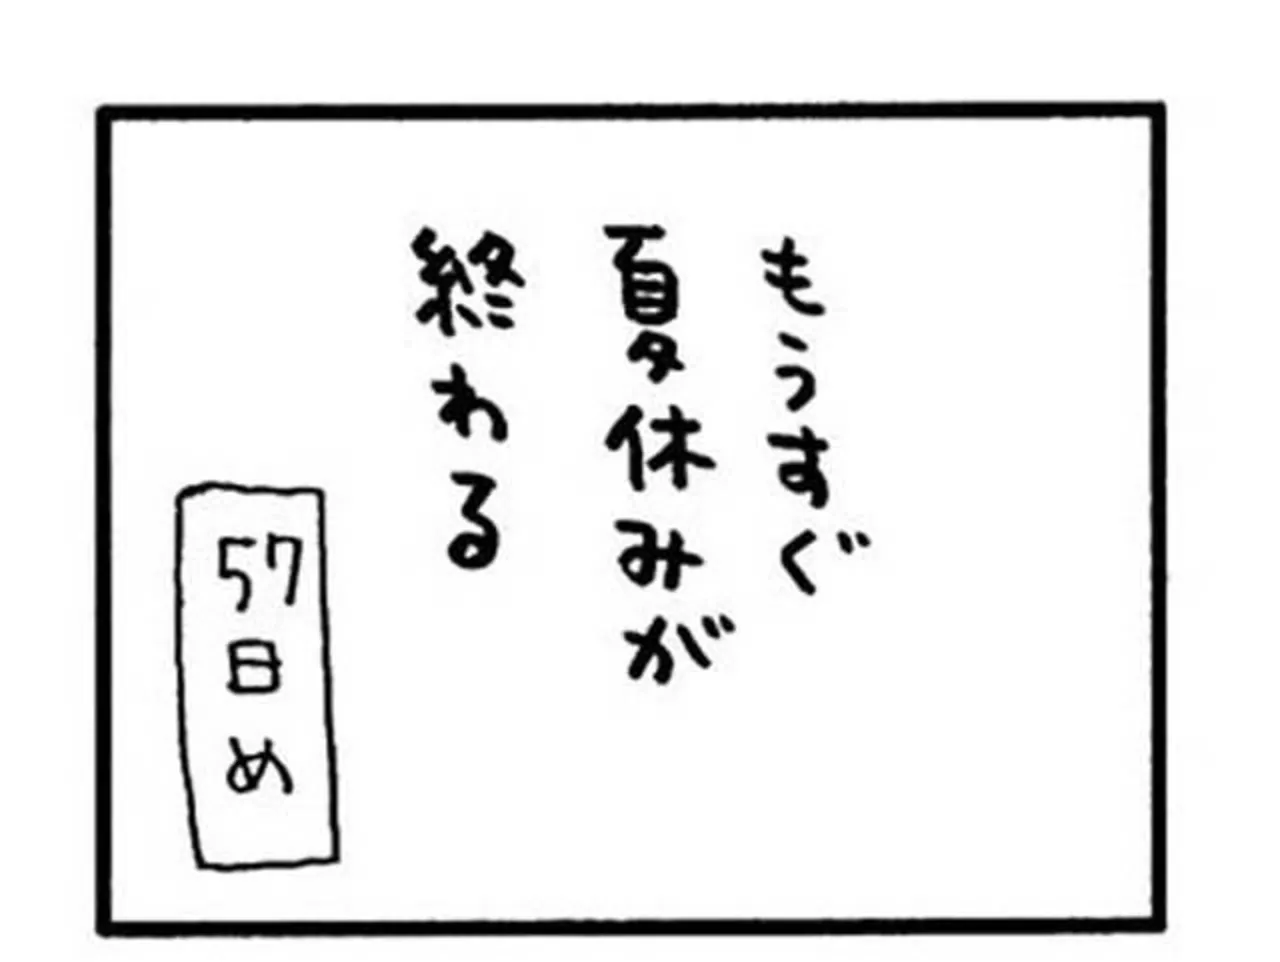 もうすぐ
夏休みが
終わる
57日め